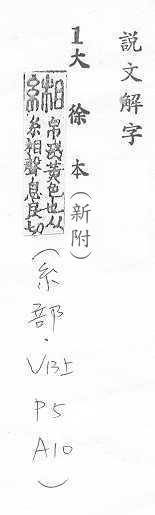 説文解字
1大徐本(新附)
緗 帛淺黃色也从
糸相聲息良切
(糸部.V13上
P5
A10)